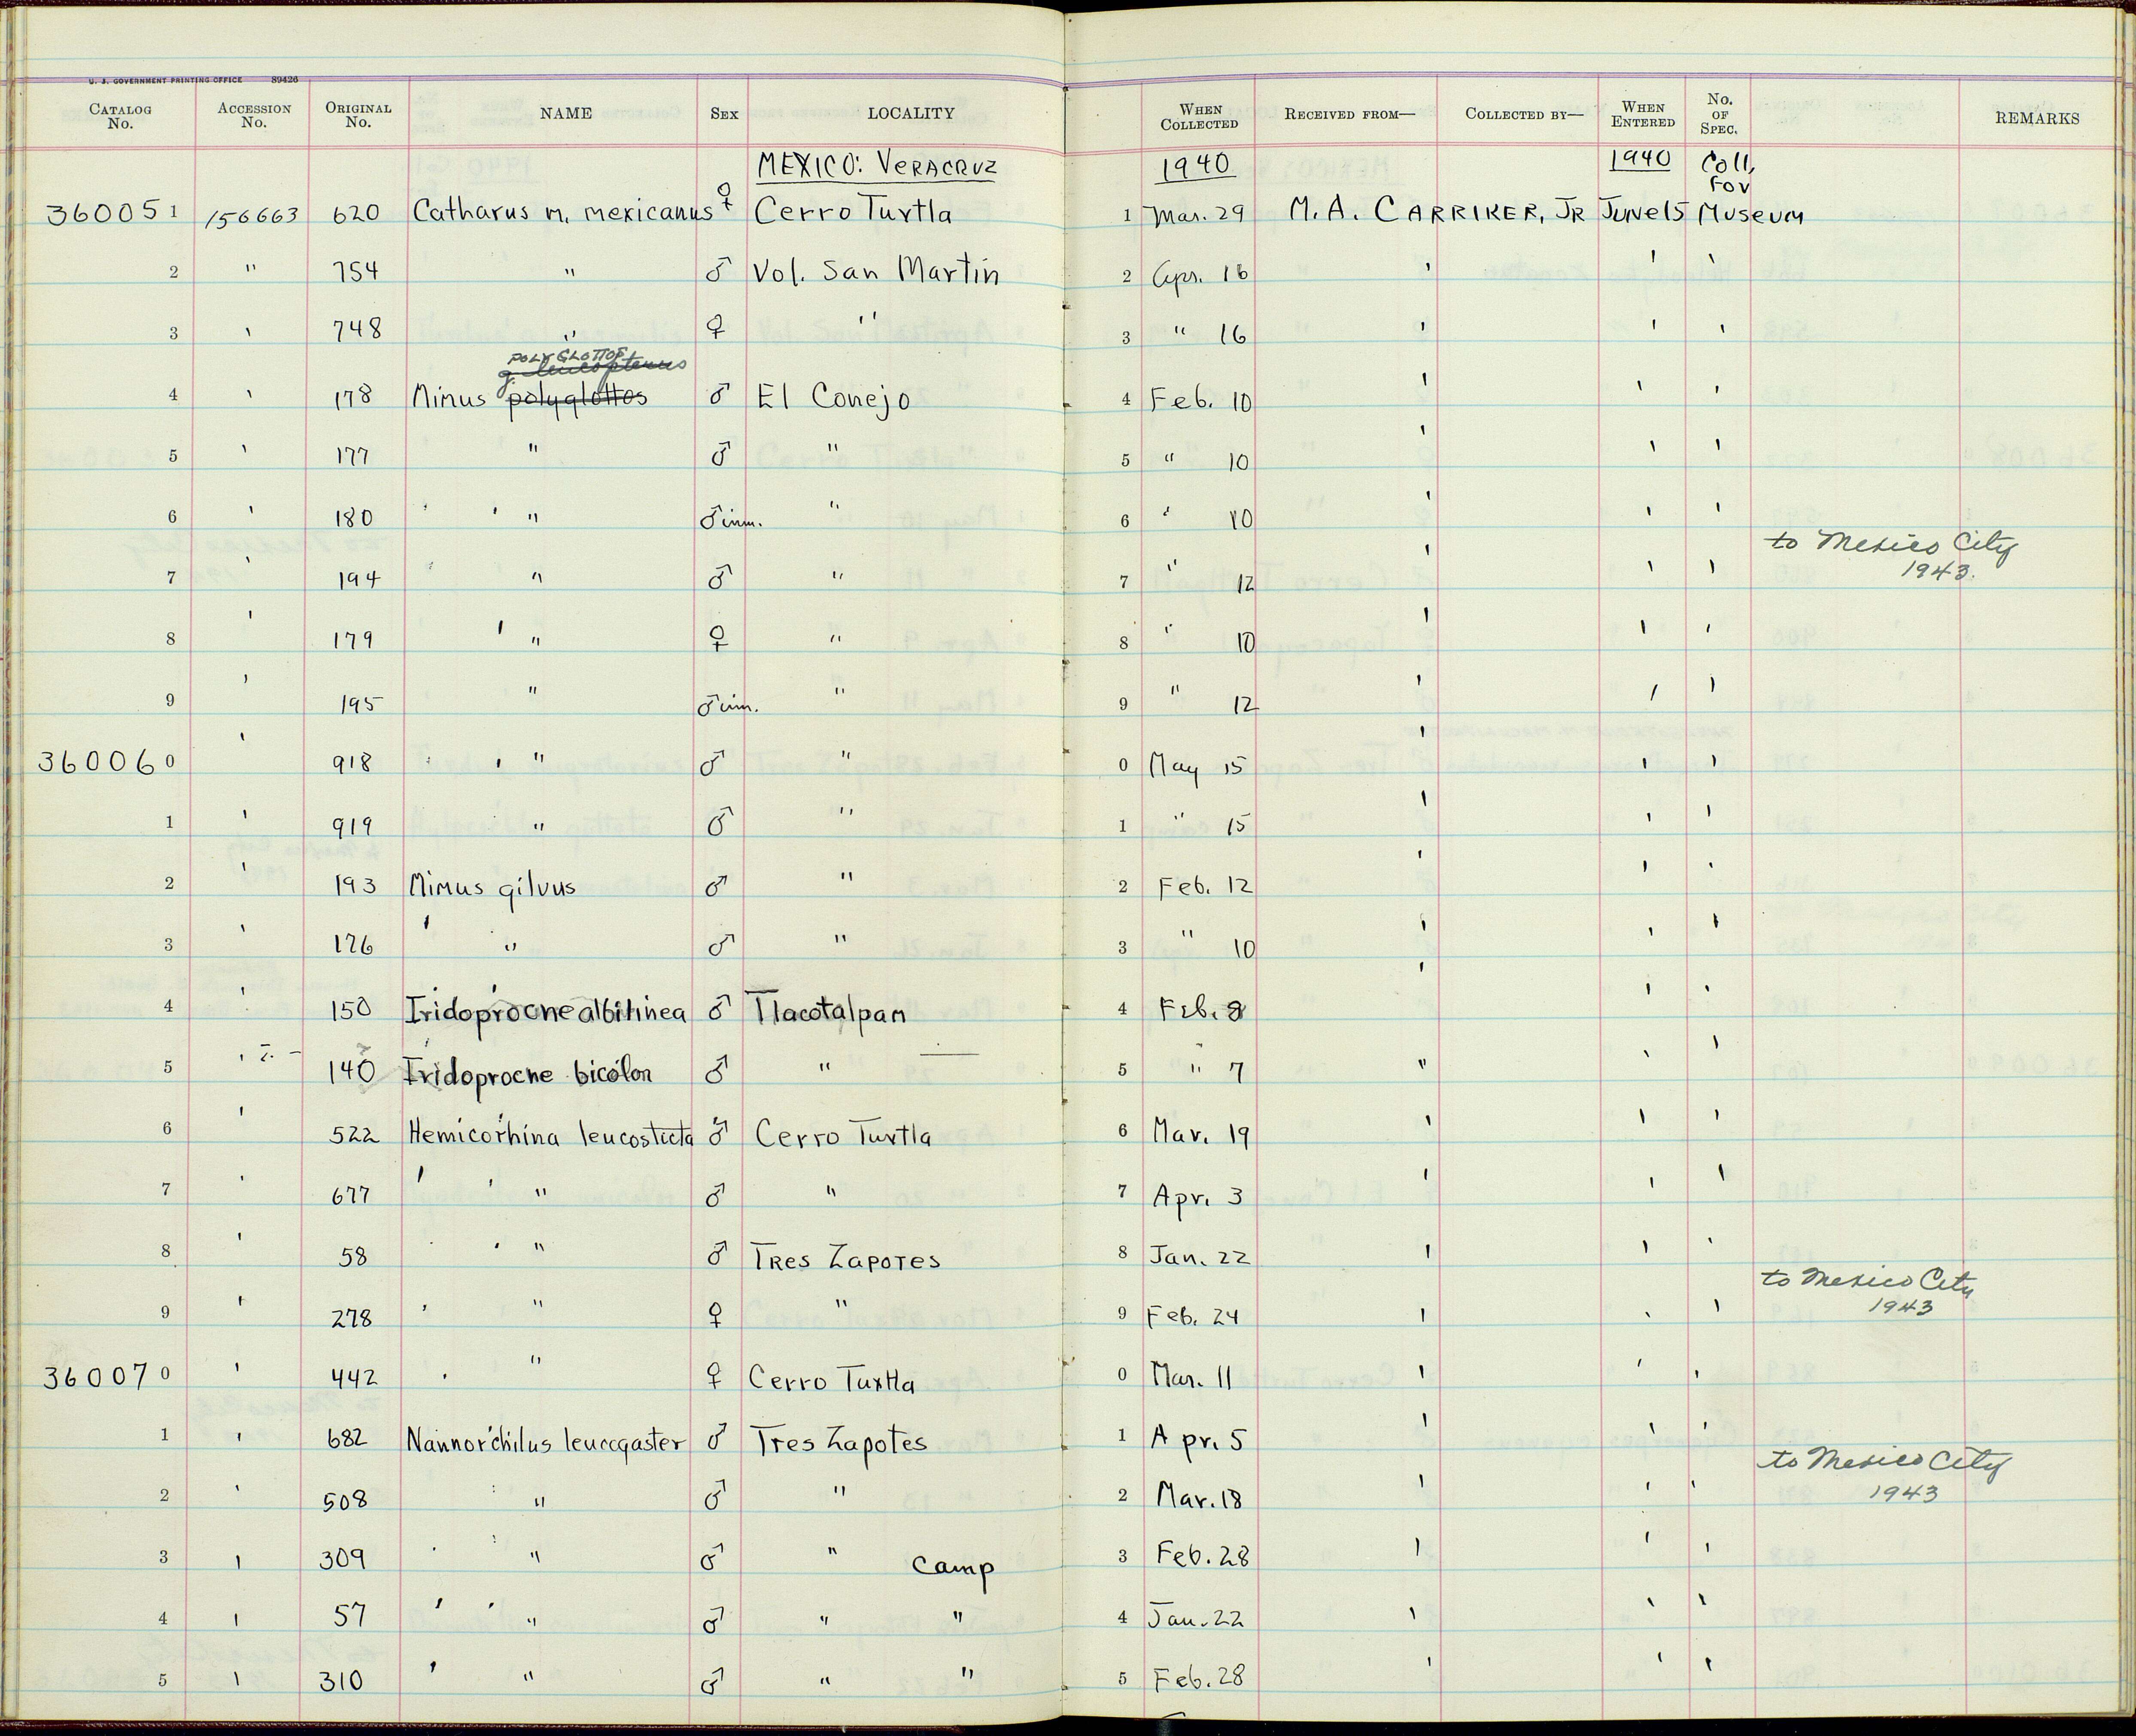 U. S. GOVERNMENT PRINTING OFFICE 89426
CATALOG No. ACCESSION No. ORIGINAL No. NAME SEX LOCALITY WHEN COLLECTED RECEIVED FROM— COLLECTED BY— WHEN ENTERED No. OF SPEC. REMARKS
MEXICO: VERACRUZ 1940 1940 Coll. For
360051 156663 620 Catharus m. mexicanus ♀ Cerro Tuxtla 1 Mar. 29 M. A. CARRIKER, JR June 15 Museum
2 " 754 " ♂ Vol. San Martin 2 Apr. 16 ' ' '
3 ' 748 " ♀ " 3 " 16 ' ' '
POLYGLOTTOS
g. leucopterus
4 ' 178 Mimus polyglottos ♂ El Conejo 4 Feb. 10 ' ' '
5 ' 177 " ♂ " 5 " 10 ' ' '
6 ' 180 ' ' " ♂ imm. " 6 ' 10 ' ' '
7 ' 194 ' " ♂ " 7 " 12 ' ' ' to Mexico City 1943.
8 ' 179 ' " ♀ " 8 " 10 ' ' '
9 ' 195 " ♂ imm. " 9 " 12 ' ' '
360060 ' 918 ' ' " ♂ " 0 May 15 ' ' '
1 ' 919 ' " ♂ " 1 " 15 ' ' '
2 ' 193 Mimus gilvus ♂ " 2 Feb. 12 ' ' '
3 ' 176 ' " ♂ " 3 " 10 ' ' '
4 ' 150 Iridoprocne albilinea ♂ Tlacotalpam 4 Feb. 8 ' ' '
5 ' 140 Iridoprocne bicolor ♂ " 5 " 7 " ' '
6 ' 522 Hemicorhina leucosticta ♂ Cerro Tuxtla 6 Mar. 19 ' ' '
7 ' 677 ' ' " ♂ " 7 Apr. 3 ' ' '
8 ' 58 ' ' " ♂ TRES ZAPOTES 8 Jan. 22 ' ' '
9 ' 278 ' " ♀ " 9 Feb. 24 ' ' ' to Mexico City 1943
360070 ' 442 ' " ♀ Cerro Tuxtla 0 Mar. 11 ' ' '
1 ' 682 Nannorchilus leucogaster ♂ Tres Zapotes 1 Apr. 5 ' ' '
2 ' 508 ' " ♂ " 2 Mar. 18 ' ' ' to Mexico City 1943
3 ' 309 ' ' " ♂ " Camp 3 Feb. 28 ' ' '
4 ' 57 ' ' " ♂ " " 4 Jan. 22 ' ' '
5 ' 310 ' " ♂ " " 5 Feb. 28 ' ' '